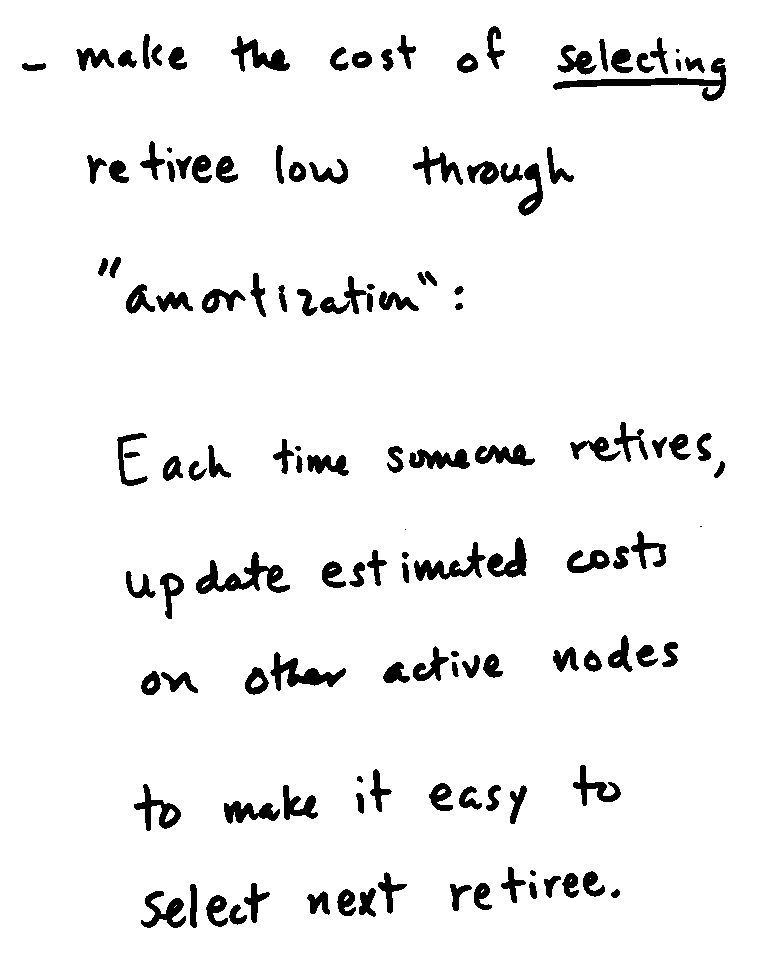 - make the cost of selecting
retiree low through
"amortization":
Each time someone retires,
update estimated costs
on other active nodes
to make it easy to
select next retiree.